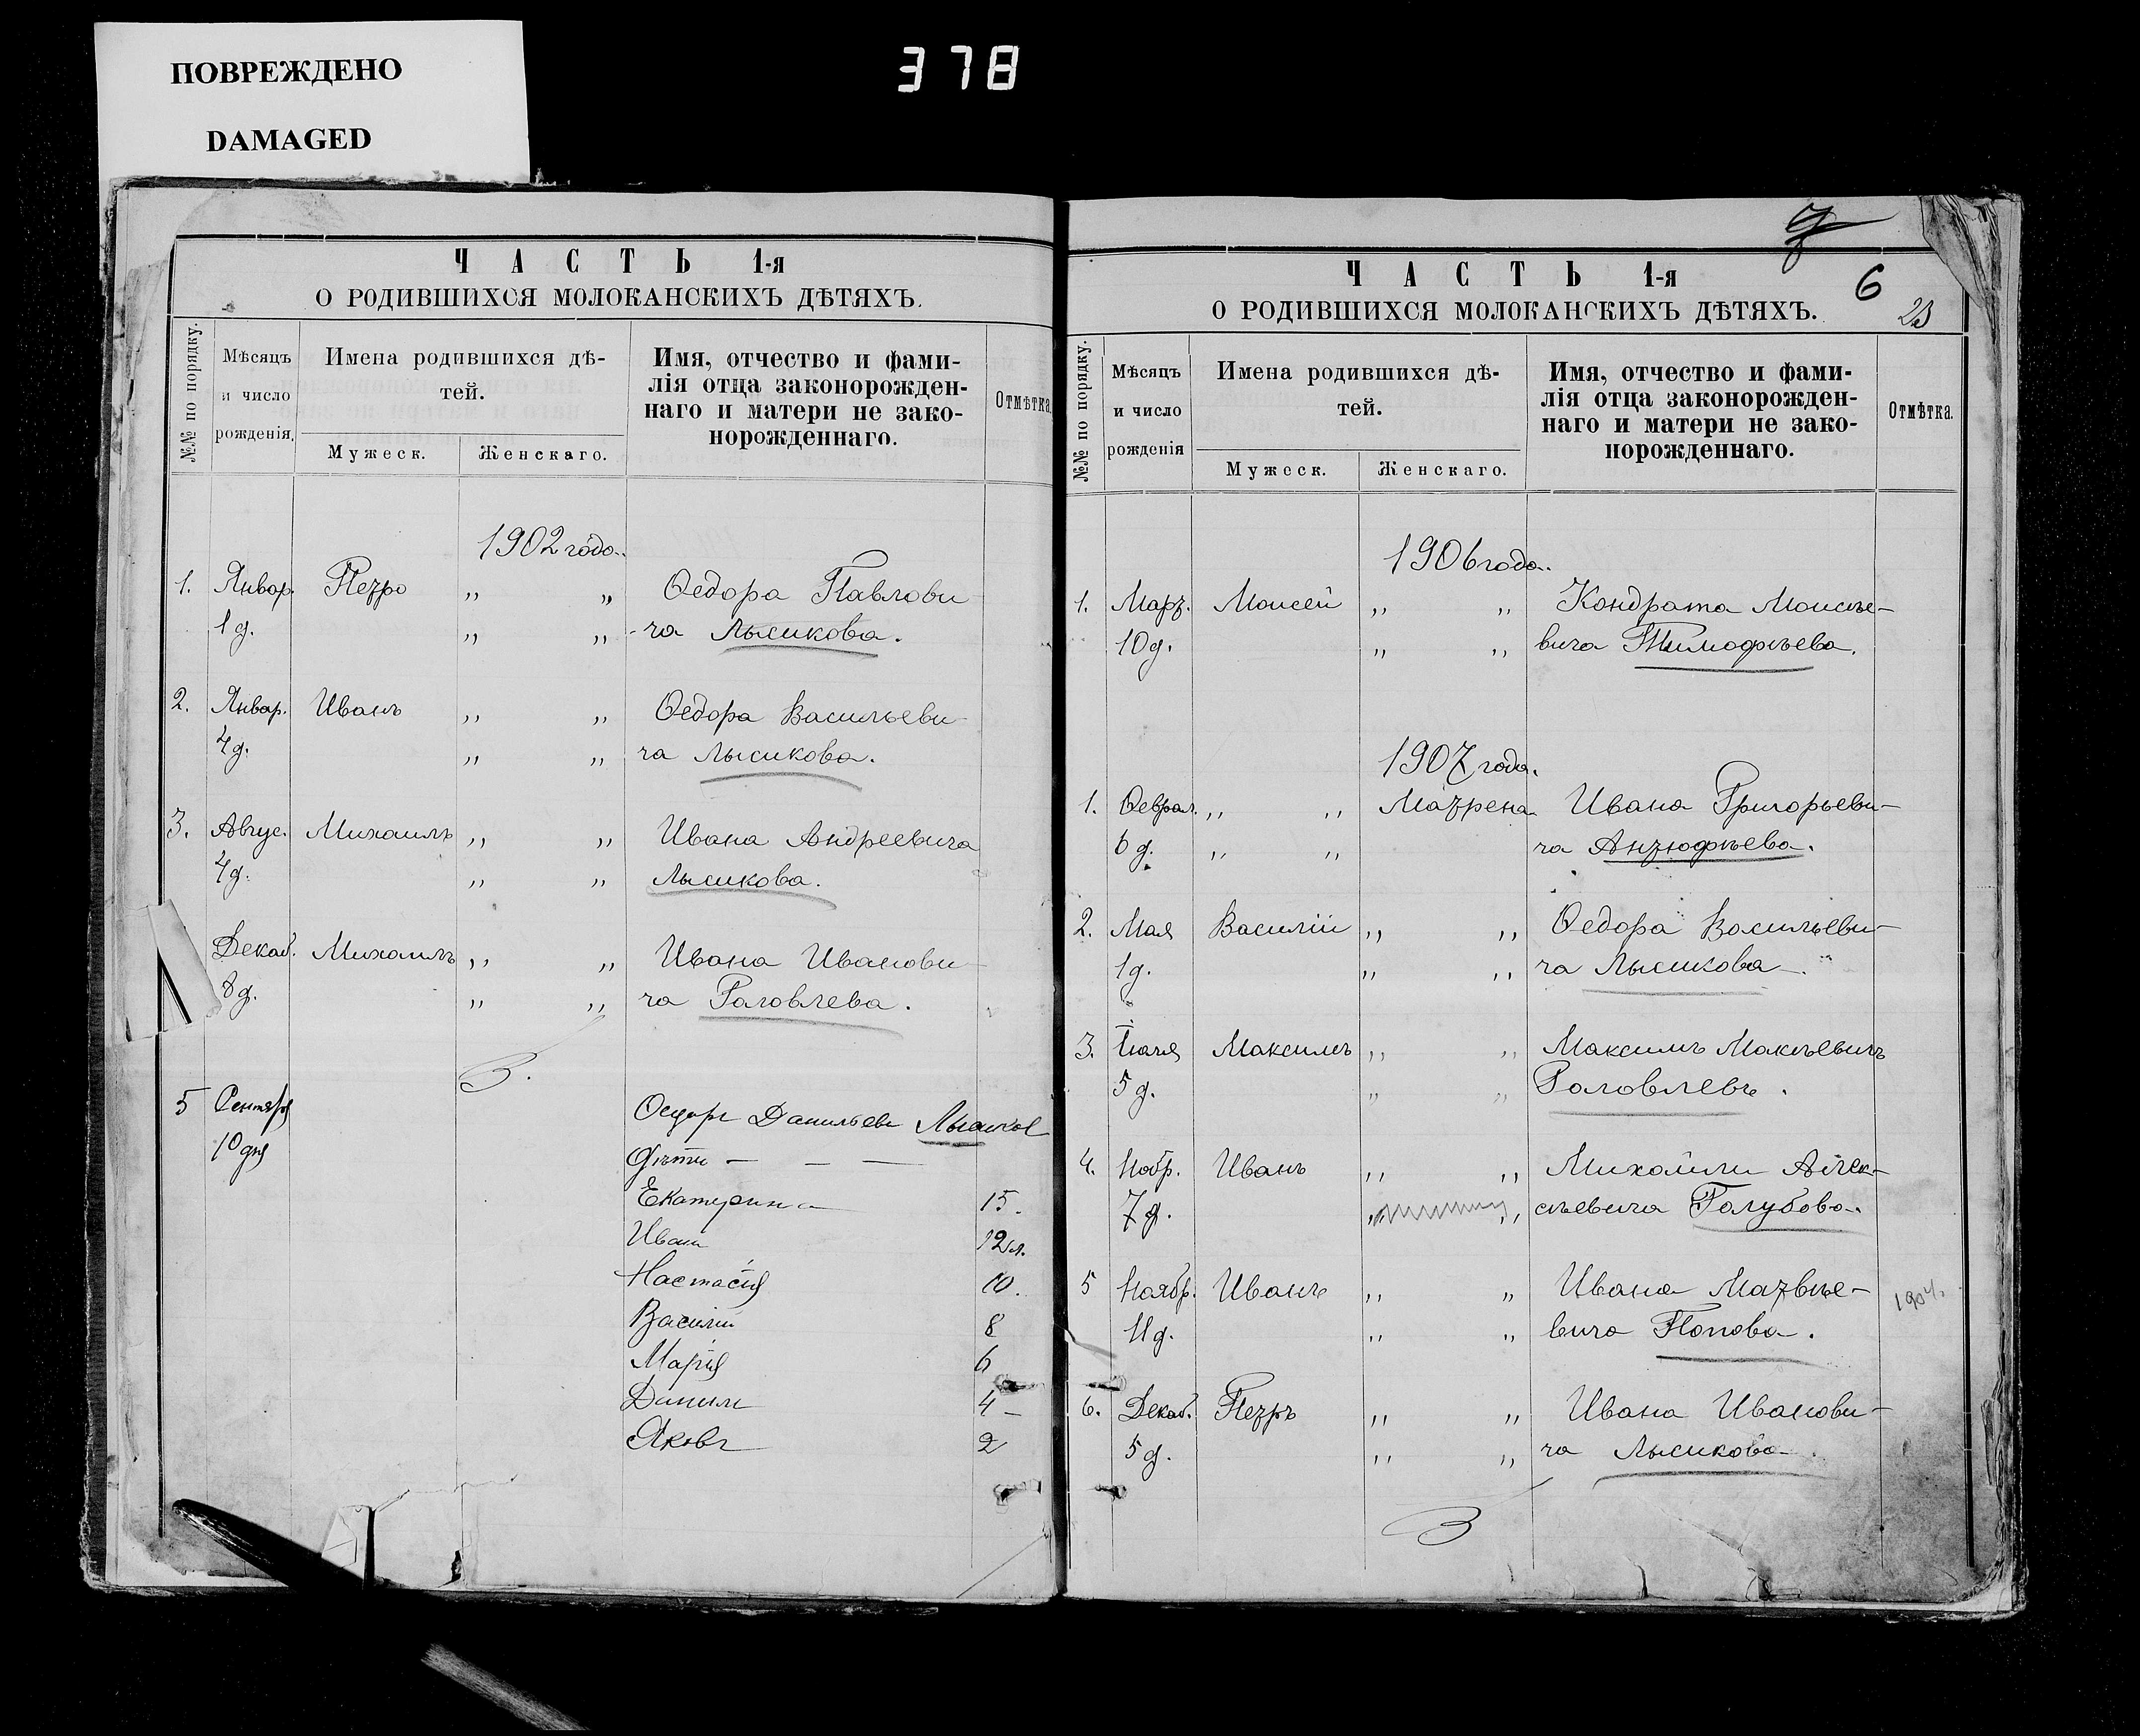 ПОВРЕЖДЕНО
DAMAGED
378
ЧАСТЬ 1-я
О РОДИВШИХСЯ МОЛОКАНСКИХЪ ДѢТЯХЪ.
№№ по порядку.
Мѣсяцъ и число рожденія.
Имена родившихся дѣ-
тей.
Мужеск.
Женскаго.
Имя, отчество и фами-
лія отца законорожден-
наго и матери не зако-
норожденнаго.
Отмѣтка.
1902 года.
1. Январ. Петро „ „ Ѳедора Павлови
1 д. „ „ ча Лысикова.
2. Январ. Иванъ „ „ Ѳедора Васильеви
4 д. „ „ ча Лысикова.
3. Авгус. Михаилъ „ „ Ивана Андреевича
4 д. „ „ Лысикова.
Декаб. Михаилъ „ „ Ивана Иванови
8 д. „ „ ча Головлева.
5 Сентября
10 дня
Ѳедоръ Данильевъ Лысиков
дѣти — — —
Екатерина 15.
Иван 12 л.
Настасія 10.
Василій 8
Марія 6
Данилъ 4 —
Яковъ 2
6
ЧАСТЬ 1-я
О РОДИВШИХСЯ МОЛОКАНСКИХЪ ДѢТЯХЪ.
№№ по порядку.
Мѣсяцъ и число рожденія
Имена родившихся дѣ-
тей.
Мужеск.
Женскаго.
Имя, отчество и фами-
лія отца законорожден-
наго и матери не зако-
норожденнаго.
Отмѣтка.
1906 года.
1. Март. Моисей „ „ Кондрата Моисѣе-
10 д. „ „ вича Тимофѣева.
1907 года.
1. Феврал. „ „ Матрена Ивана Григорьеви-
6 д. „ „ ча Антюфѣева.
2. Мая Василій „ „ Ѳедора Васильеви-
1 д. „ „ ча Лысикова.
3. Іюля Максимъ „ „ Максимъ Макѣевичъ
5 д. „ „ Головлевъ.
4. Ноябр. Иванъ „ „ Михаила Алек-
7 д. „ „ сѣевича Голубова.
5 Ноябр. Иванъ „ „ Ивана Матвѣе- 1904.
11 д. „ „ вича Попова.
6. Декаб. Петръ „ „ Ивана Иванови-
5 д. „ „ ча Лысикова